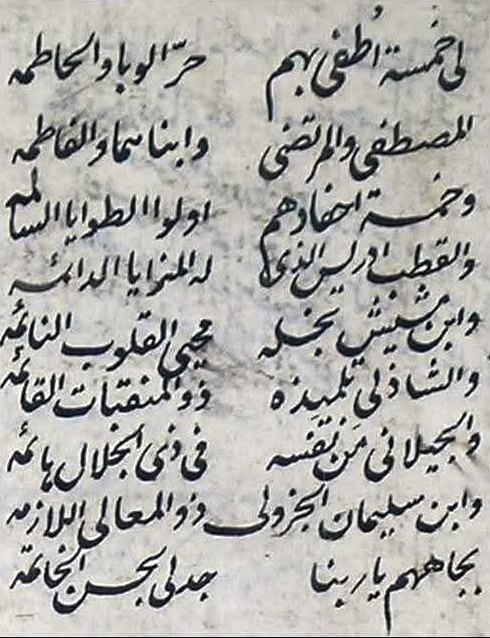 لى خمسة اُطفى بهم حرّ الوبا والحاطمه
المصطفى والمرتضى وابناهما والفاطمه
وخمسة احفادهم اولوا الطوايا السالمه
والقطب ادريس الذى له المزايا الدائمه
وابن مشيش نجله محيى القلوب النائمه
والشاذلى تلميذه ذو المنقبات القائمه
والجيلانى مَن نفسه فى ذى الجلال هائمه
وابن سليمان الجزولى ذو المعالى اللازمه
بجاههم يا ربنا جد لى بحسن الخاتمه